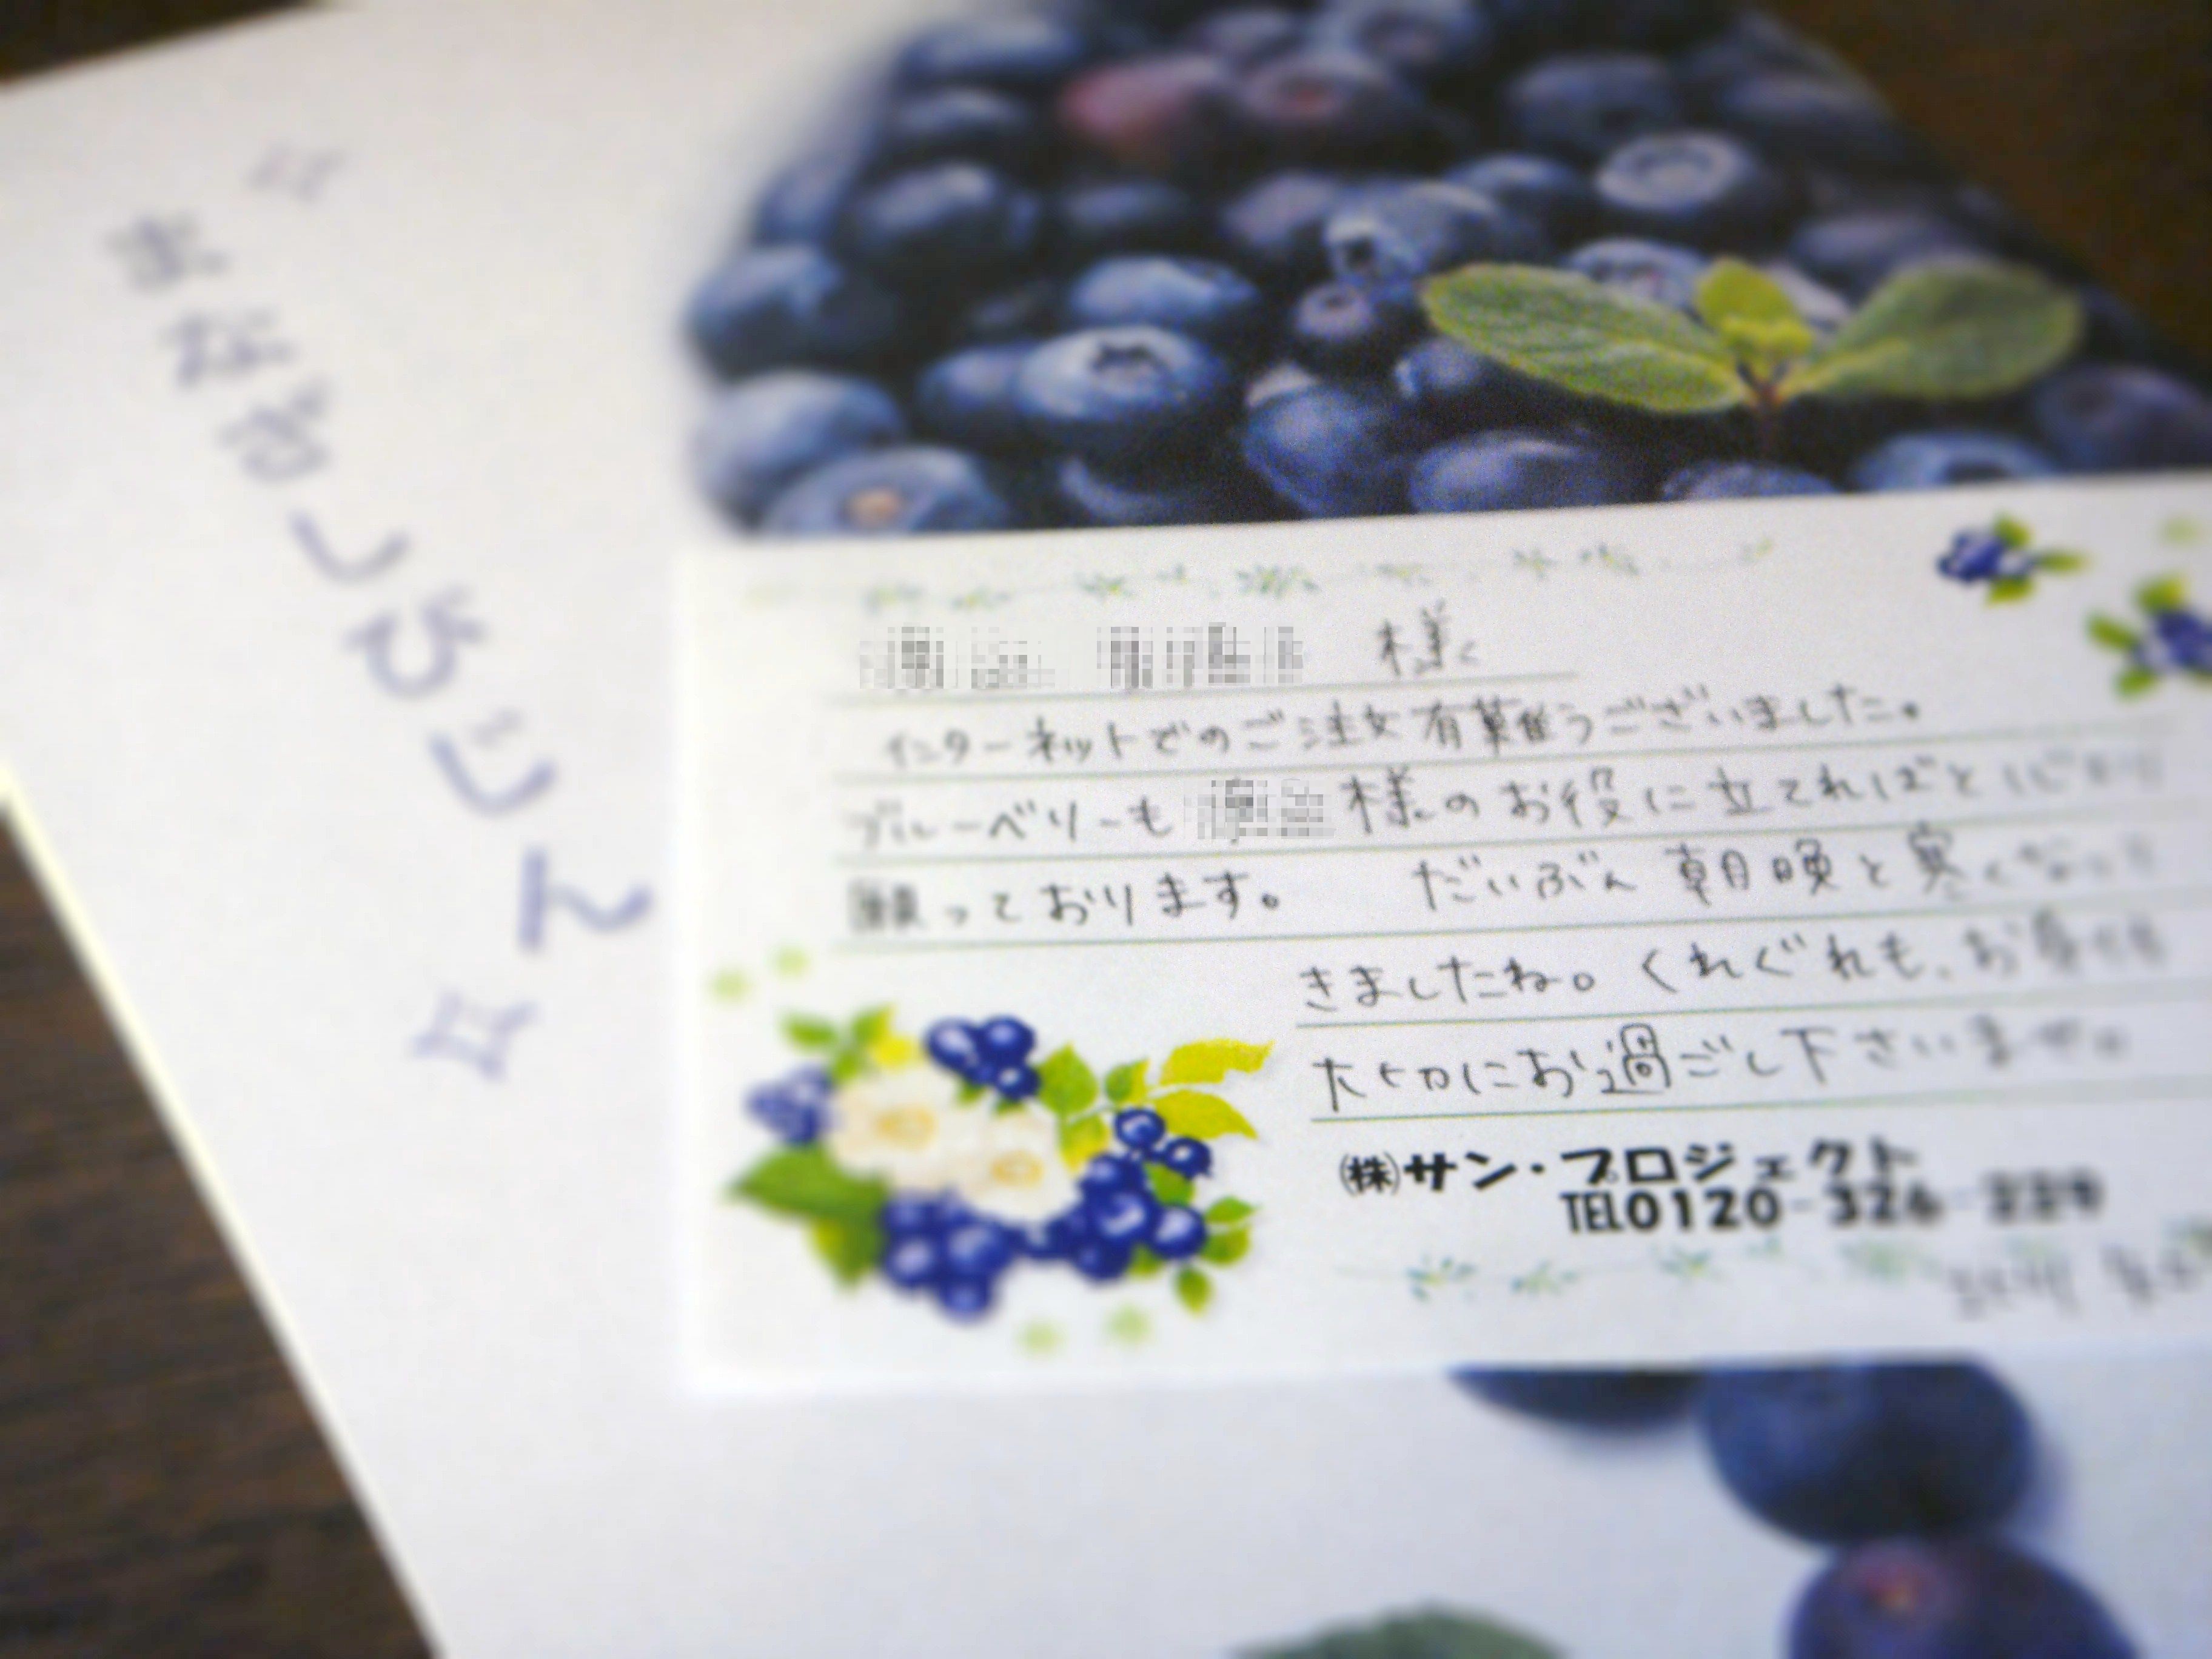 まなざしびじん
様
インターネットでのご注文有難うございました。
ブルーベリーも 様のお役に立てればと
願っております。 だいぶん 朝晩と寒くなって
きましたね。くれぐれも、お身体
大切にお過ごし下さいませ。
㈱サン・プロジェクト
TEL0120-326-